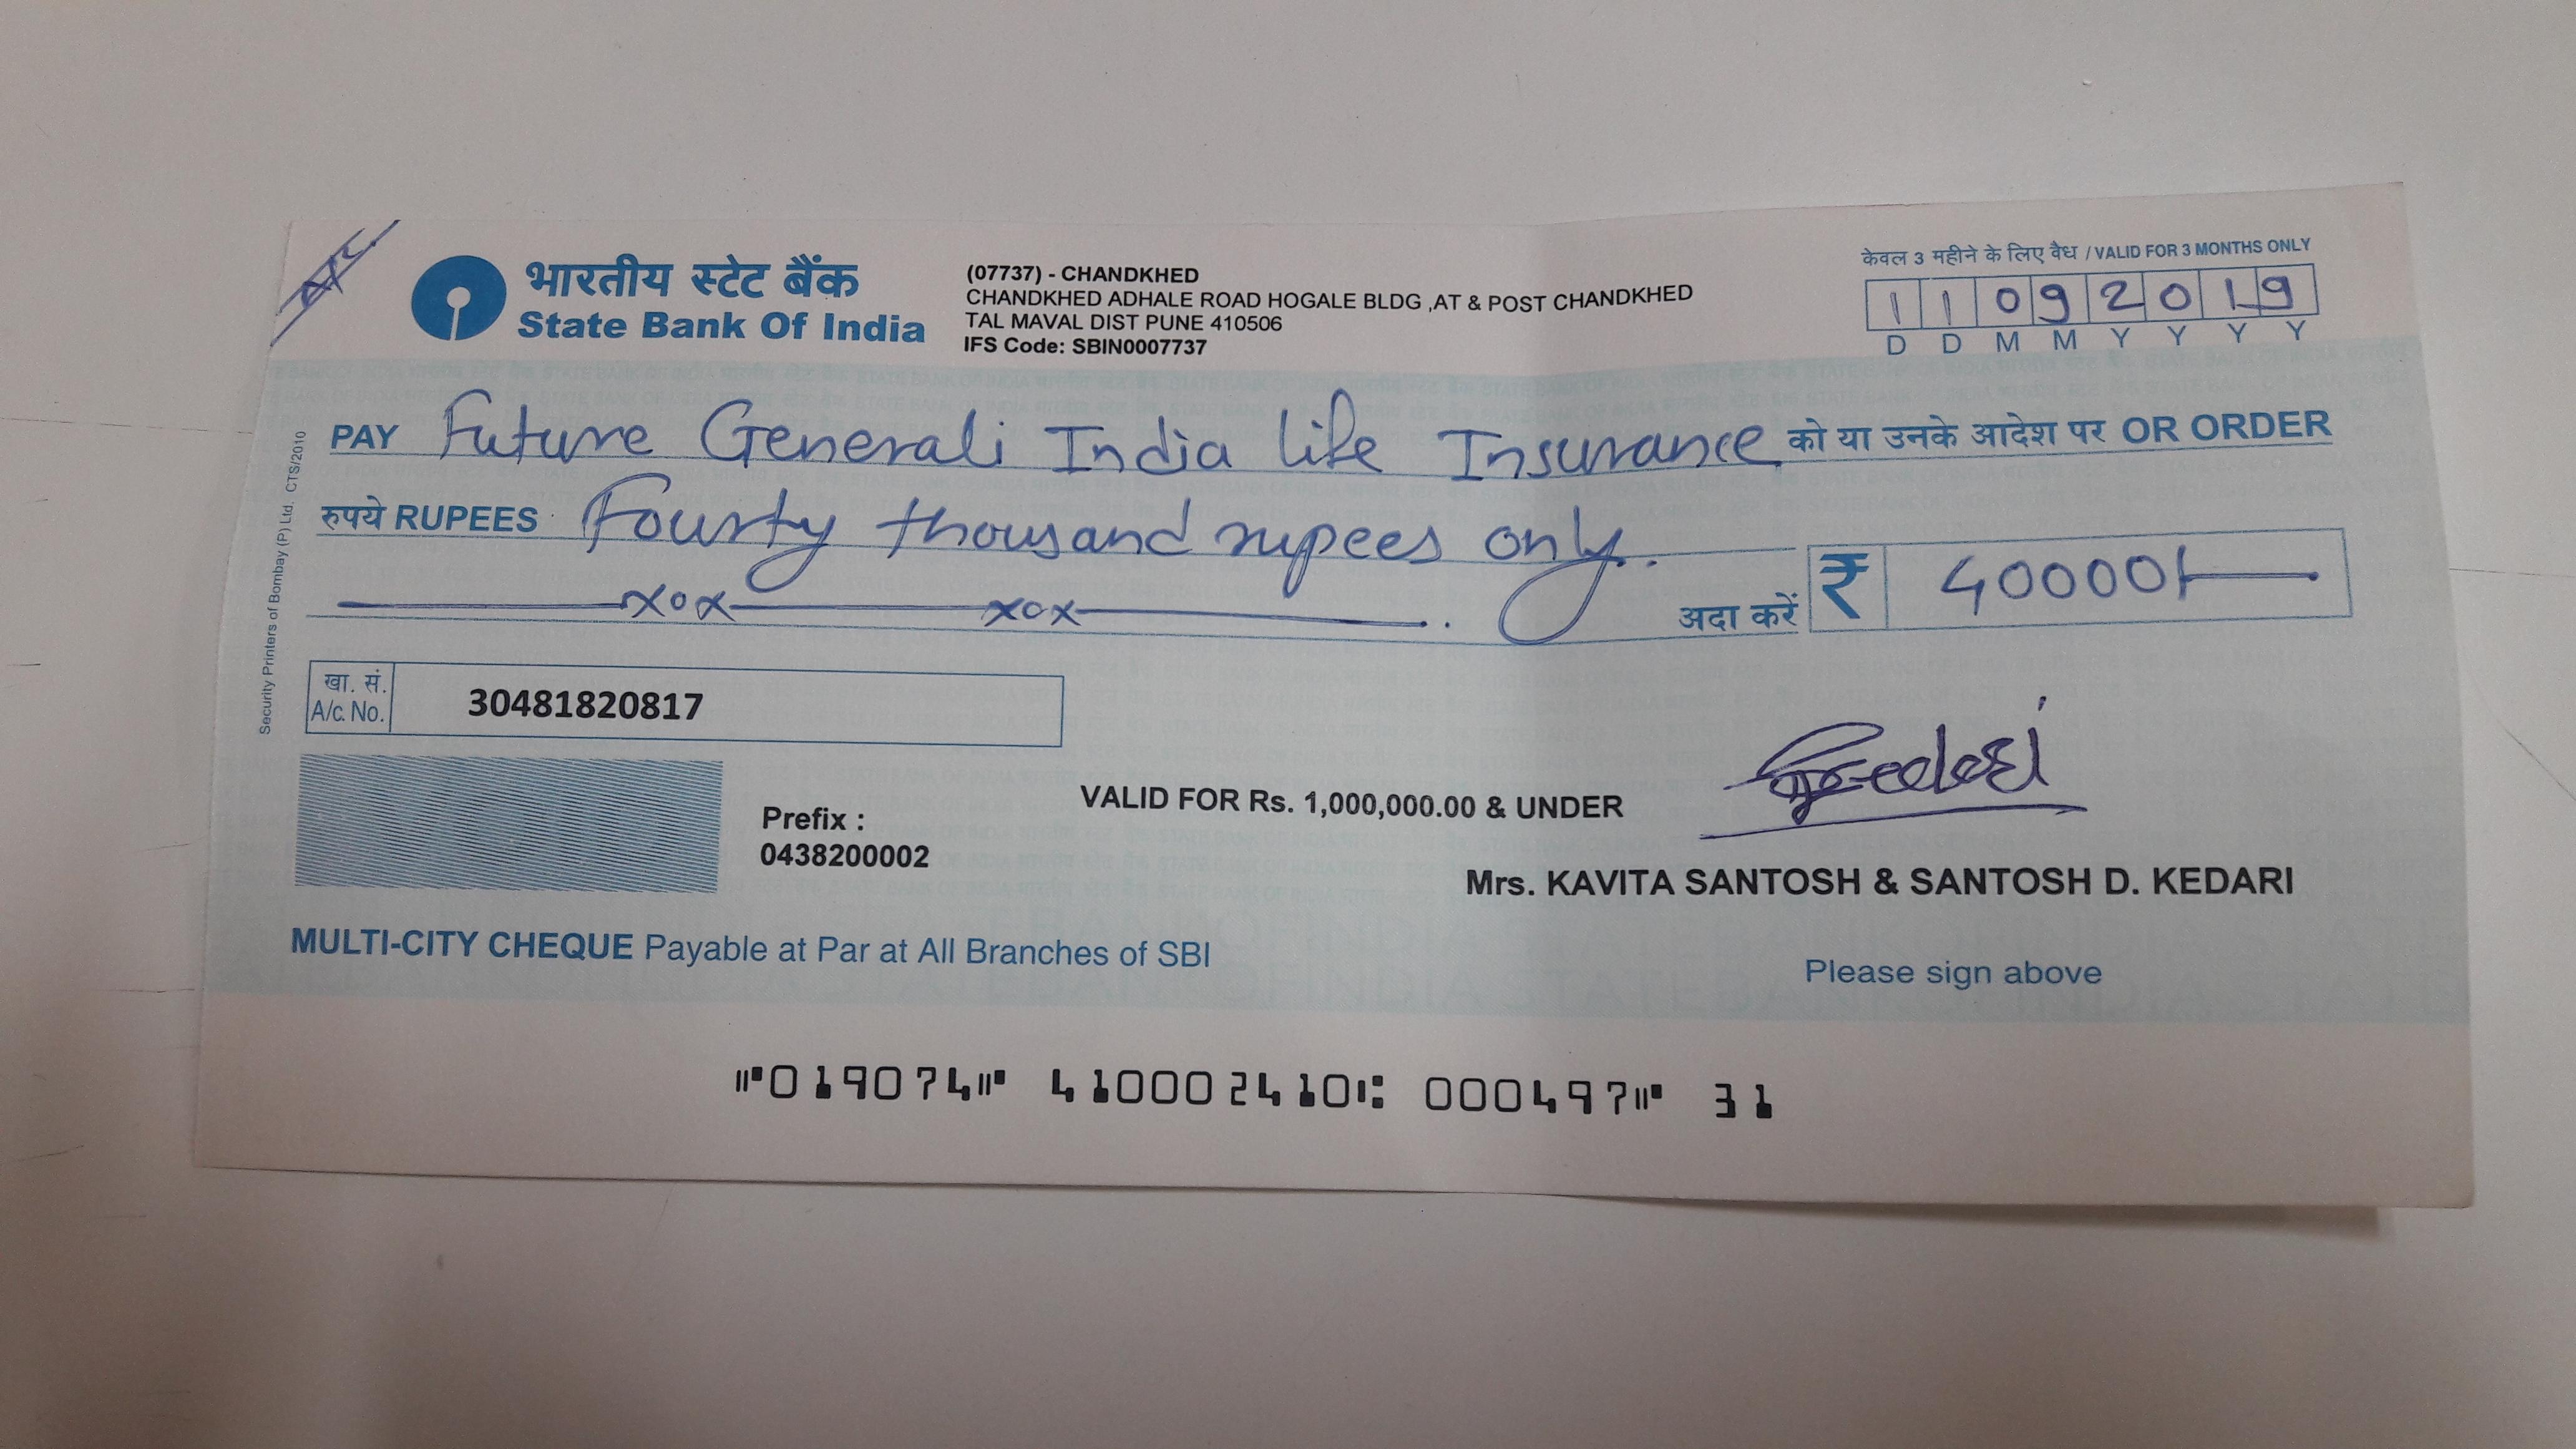 A/c
भारतीय स्टेट बैंक
State Bank Of India
(07737) - CHANDKHED
CHANDKHED ADHALE ROAD HOGALE BLDG ,AT & POST CHANDKHED
TAL MAVAL DIST PUNE 410506
IFS Code: SBIN0007737
केवल 3 महीने के लिए वैध / VALID FOR 3 MONTHS ONLY
11092019
D D M M Y Y Y Y
PAY Future Generali India life Insurance को या उनके आदेश पर OR ORDER
रुपये RUPEES Fourty thousand rupees only.
xox xox .
अदा करें ₹ 40000/-
खा. सं.
A/c. No. 30481820817
Security Printers of Bombay (P) Ltd. CTS/2010
Prefix :
0438200002
VALID FOR Rs. 1,000,000.00 & UNDER
Kedari
Mrs. KAVITA SANTOSH & SANTOSH D. KEDARI
MULTI-CITY CHEQUE Payable at Par at All Branches of SBI
Please sign above
⑈019074⑈ 410002410⑆ 000497⑈ 31